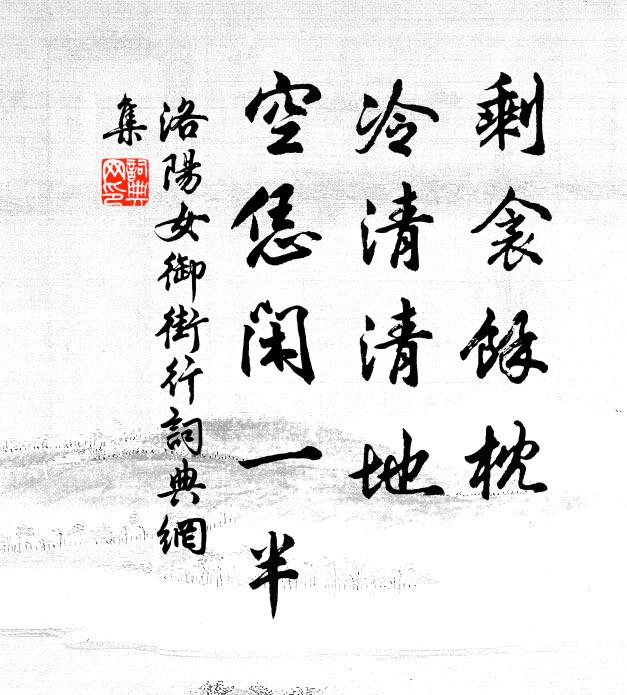 剩衾餘枕
冷清清地
空恁閑一半
洛陽女御街行詞典網
集
詞典
网印